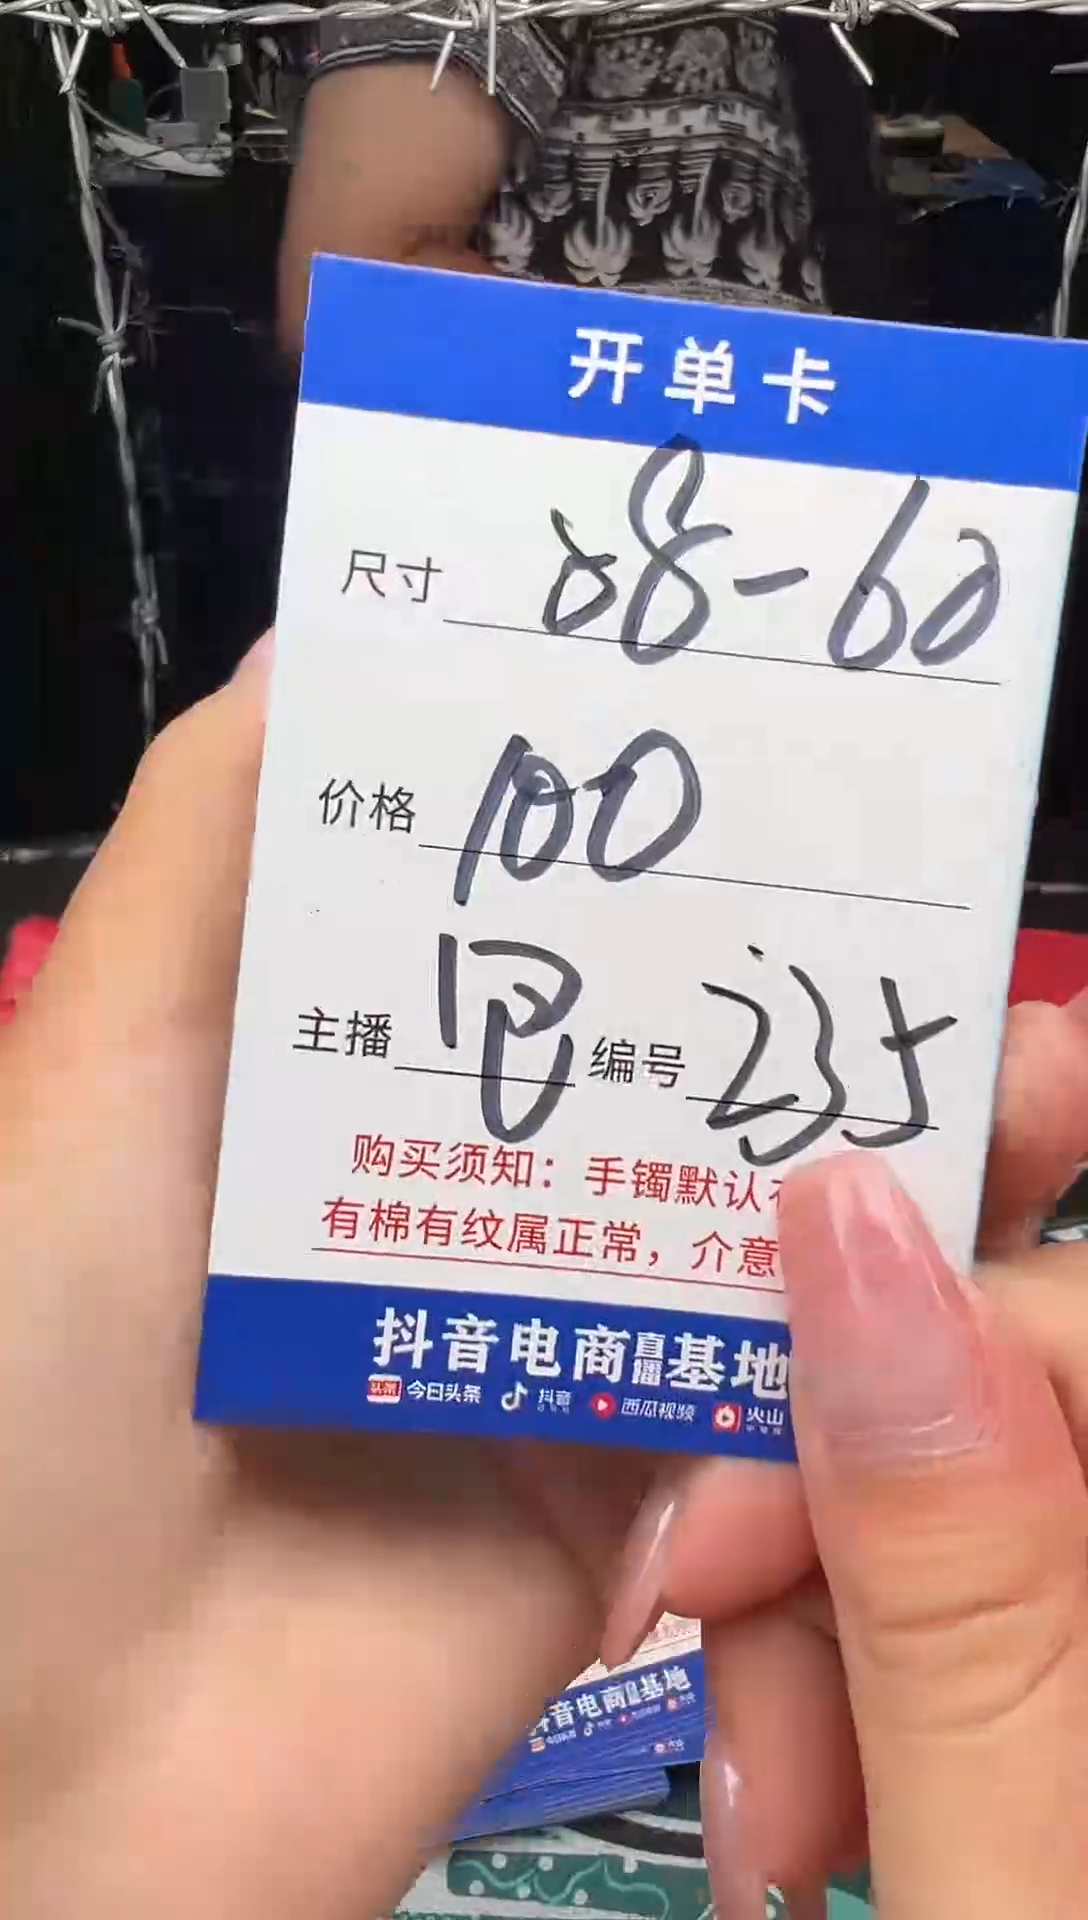 开单卡
尺寸 58-60
价格 100
主播 编号 235
购买须知：手镯默认
有棉有纹属正常，介意
抖音电商直播基地
今日头条 抖音 西瓜视频 火山
抖音电商直播基地